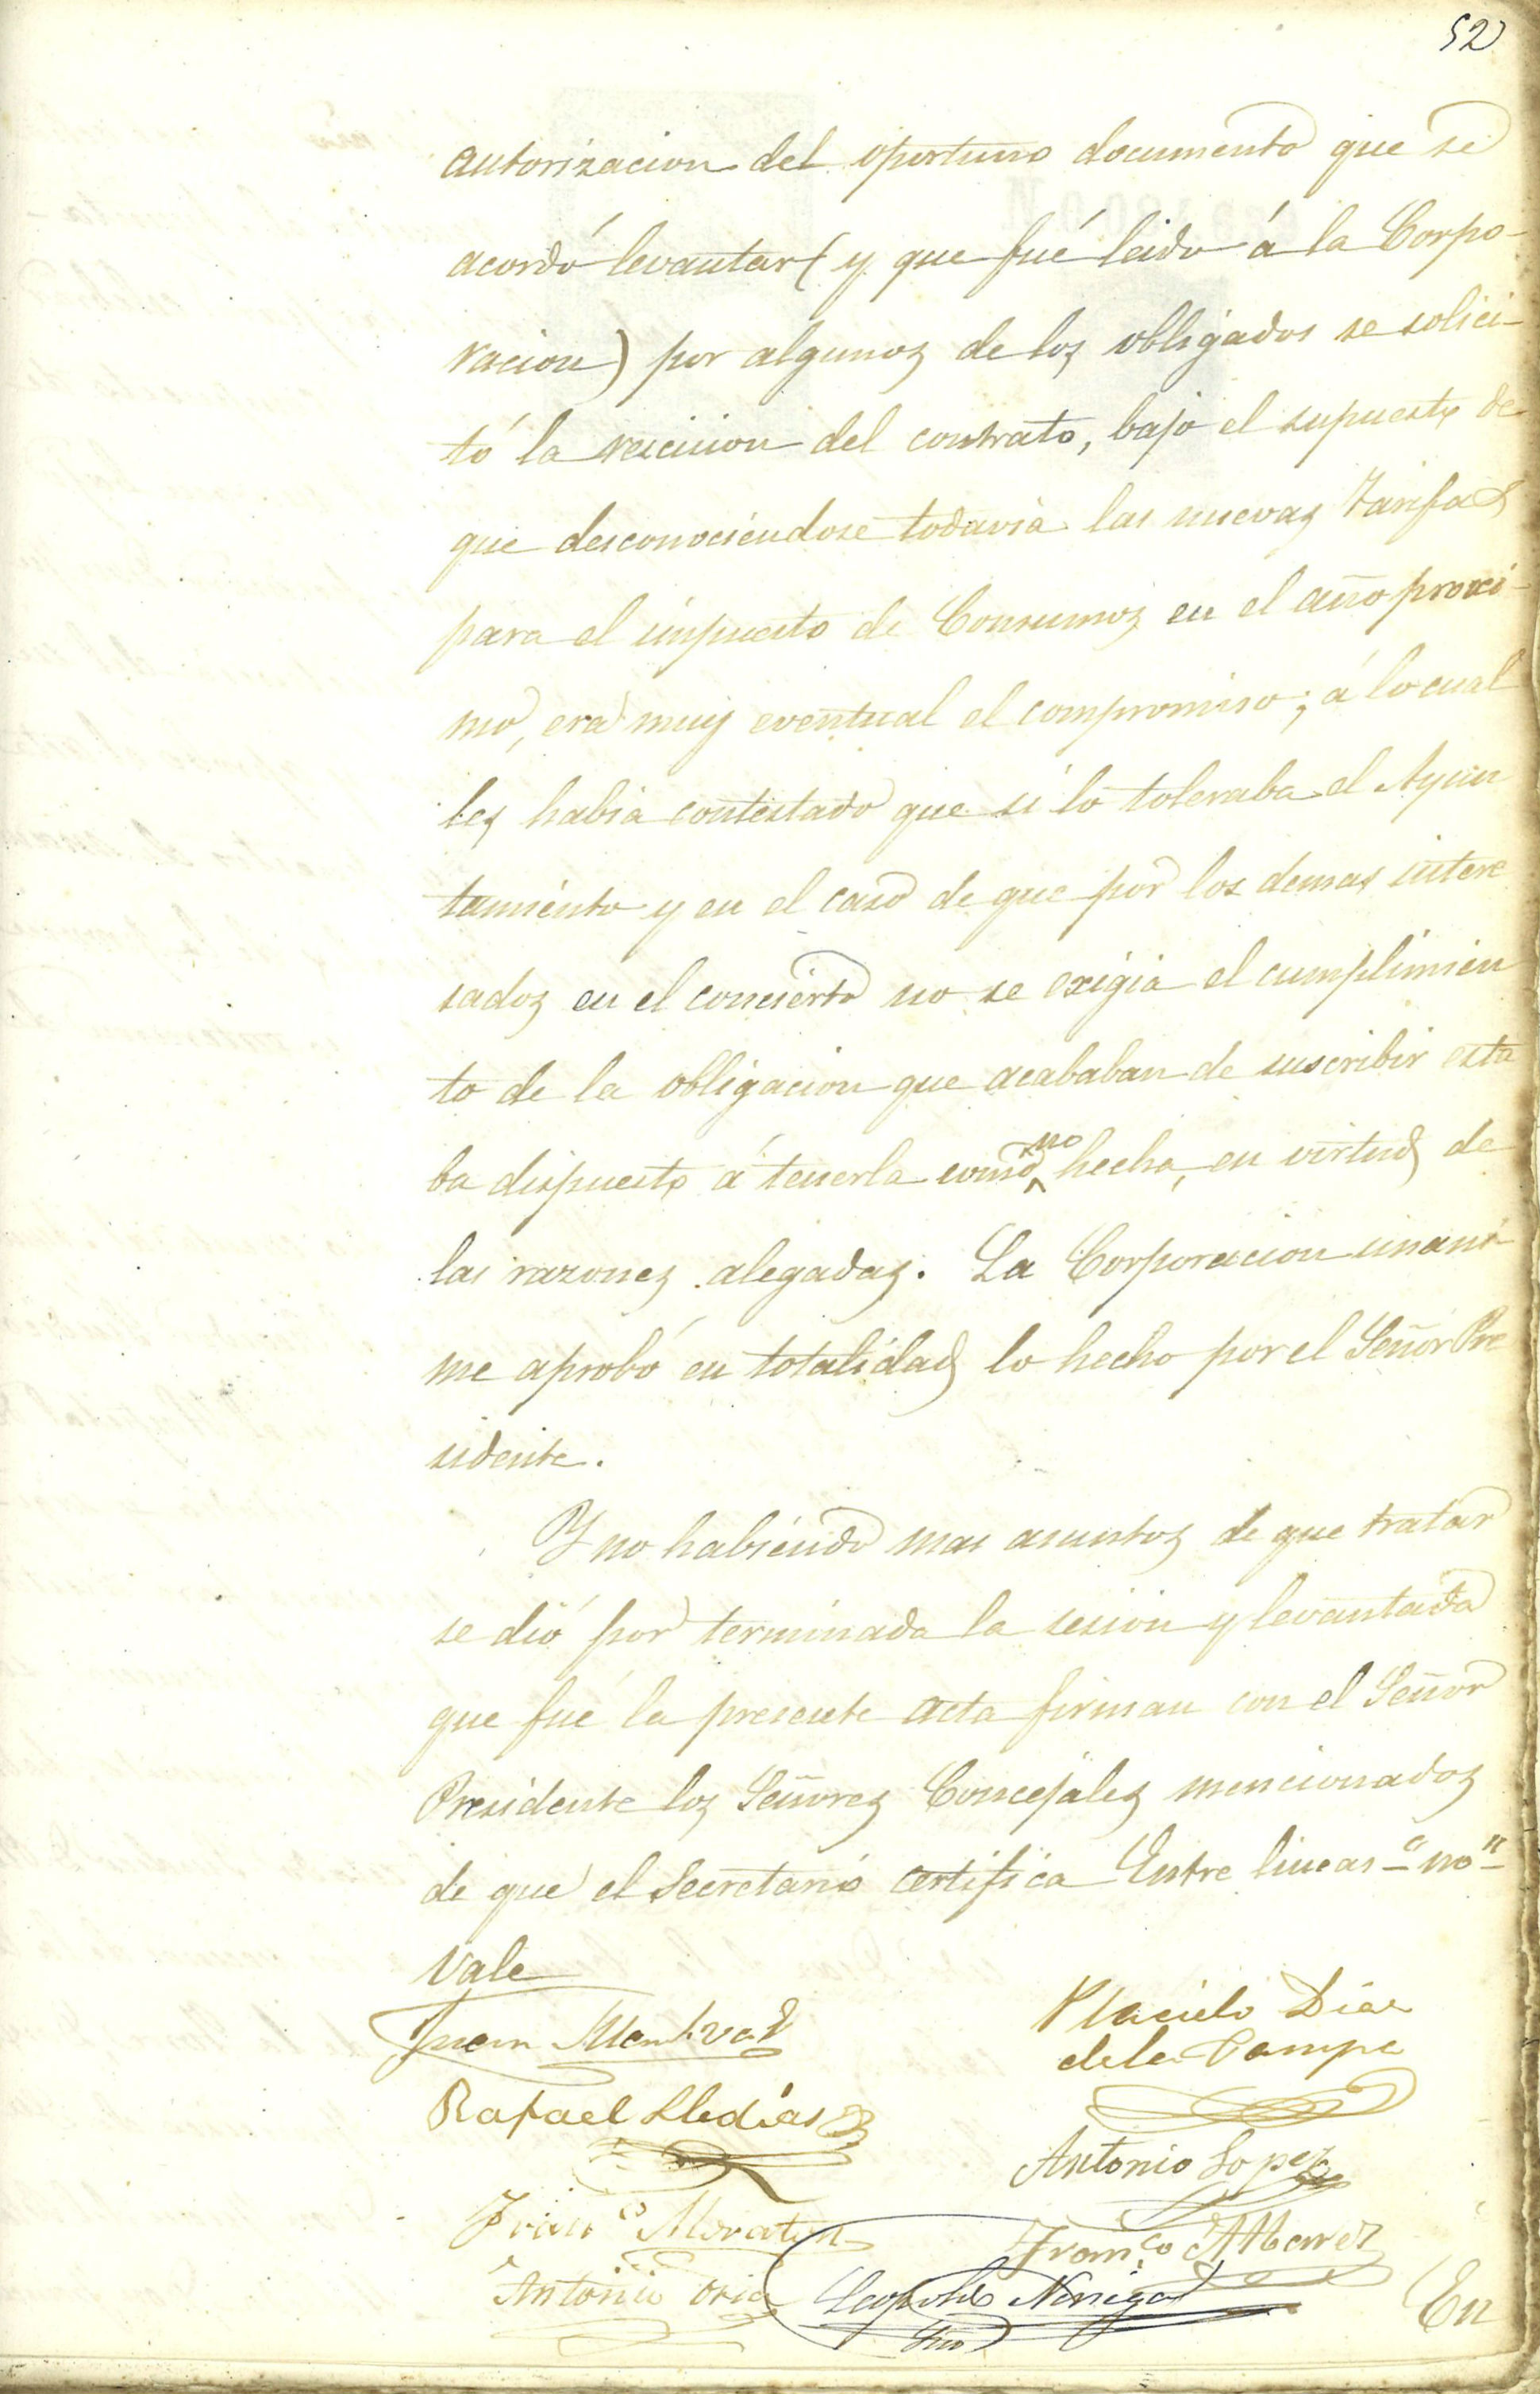 52
autorizacion del oportuno documento que se
acordó levantar (y que fué leido á la Corpo-
racion) por algunos de los obligados se solici-
tó la rescision del contrato, bajo el supuesto de
que desconociéndose todavia las nuevas Tarifas
para el impuesto de Consumos en el año proxi-
mo, era muy eventual el compromiso; á lo cual
les habia contestado que si lo toleraba el Ayun
tamiento y en el caso de que por los demas intere
sados en el concierto no se exigia el cumplimien
to de la obligacion que acababan de suscribir esta
ba dispuesto á tenerla como no hecha, en virtud de
las razones alegadas. La Corporacion unani-
me aprobó en totalidad lo hecho por el Señor Pre
sidente.
Y no habiendo mas asuntos de que tratar
se dió por terminada la sesion y levantada
que fué la presente acta firman con el Señor
Presidente los Señores Concejales mencionados
de que el Secretario certifica Entre lineas - "no" -
Vale
Juan Placido Diaz
de la Campa
Rafael Lledias
Antonio Lopez
Franco Moraton
Franco
Antonio Oria Leopoldo
Srio
En